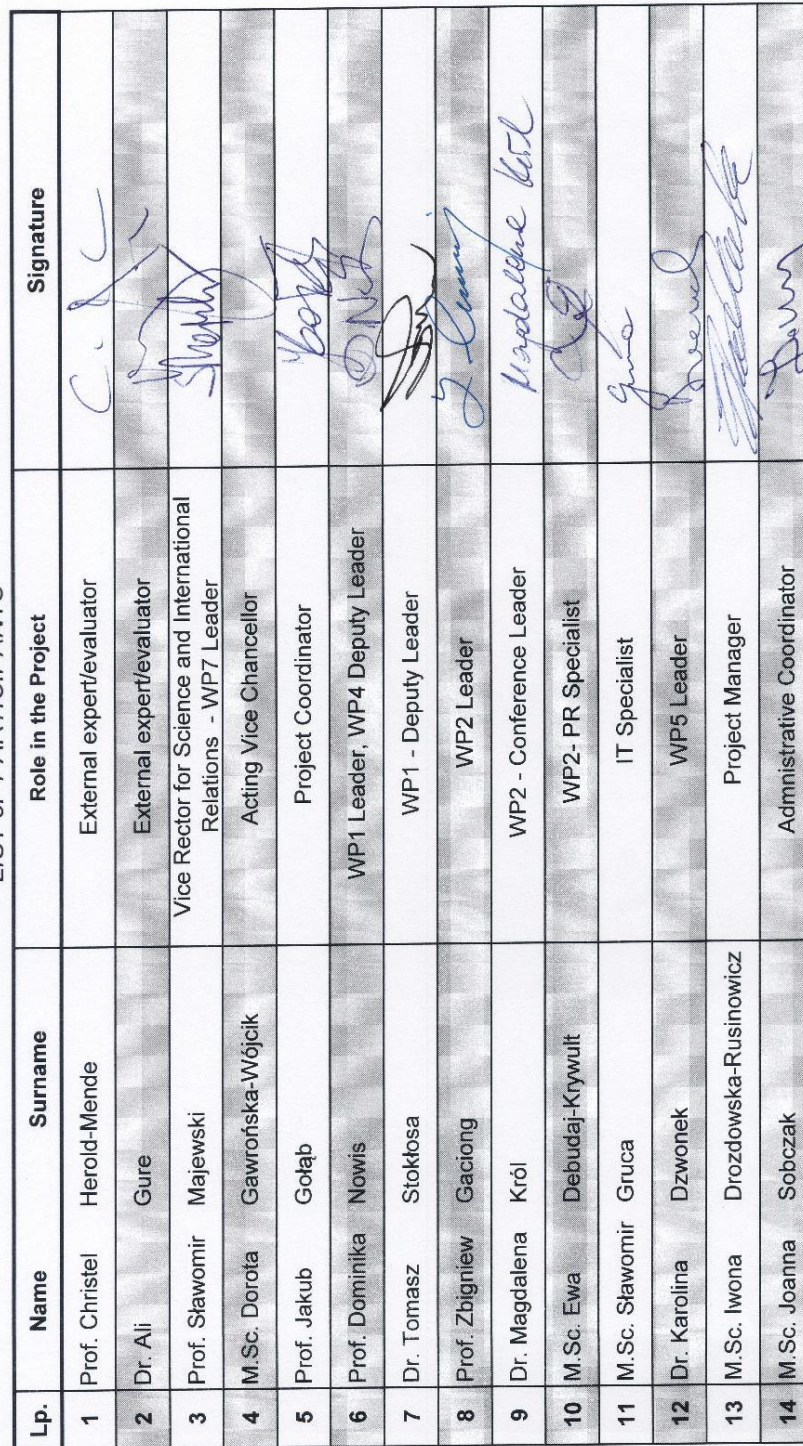 LIST of PARTICIPANTS
Lp. Name Surname Role in the Project Signature
1 Prof. Christel Herold-Mende External expert/evaluator
2 Dr. Ali Gure External expert/evaluator
3 Prof. Sławomir Majewski Vice Rector for Science and International
Relations - WP7 Leader
4 M.Sc. Dorota Gawrońska-Wójcik Acting Vice Chancellor
5 Prof. Jakub Gołąb Project Coordinator
6 Prof. Dominika Nowis WP1 Leader, WP4 Deputy Leader
7 Dr. Tomasz Stokłosa WP1 - Deputy Leader
8 Prof. Zbigniew Gaciong WP2 Leader
9 Dr. Magdalena Król WP2 - Conference Leader Magdalena Król
10 M.Sc. Ewa Debudaj-Krywult WP2- PR Specialist
11 M.Sc. Sławomir Gruca IT Specialist
12 Dr. Karolina Dzwonek WP5 Leader
13 M.Sc. Iwona Drozdowska-Rusinowicz Project Manager
14 M.Sc. Joanna Sobczak Admnistrative Coordinator